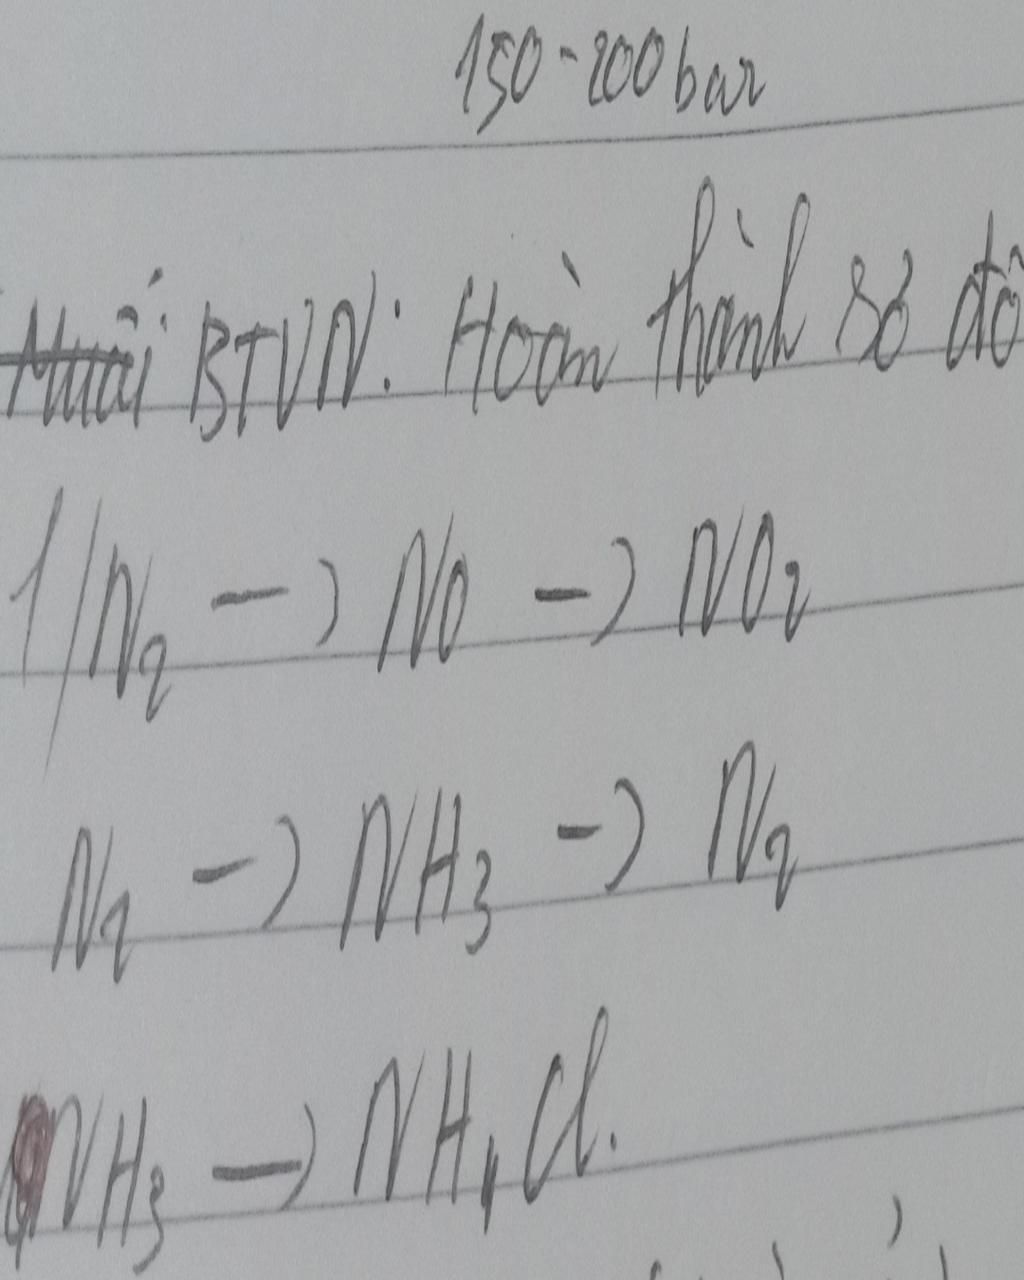 150-200 bar
BTVN: Hoàn thành sơ đồ
1/ N₂ → NO → NO₂
N₂ → NH₃ → N₂
NH₃ → NH₄Cl.